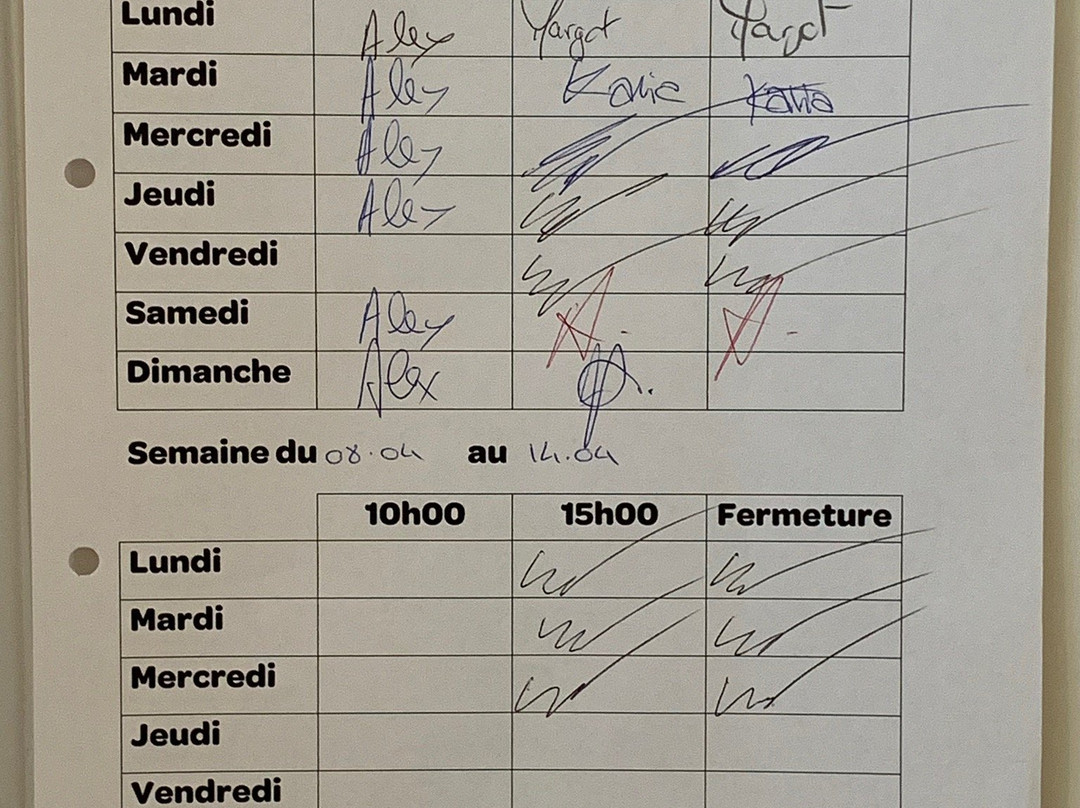 Lundi Alex Margot Margot
Mardi Alex Katia Katia
Mercredi Alex
Jeudi Alex
Vendredi
Samedi Alex
Dimanche Alex
Semaine du 08.04 au 14.04
10h00 15h00 Fermeture
Lundi
Mardi
Mercredi
Jeudi
Vendredi